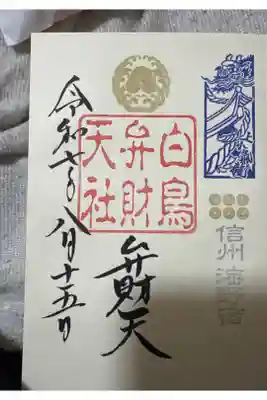 白鳥
弁財
天社
弁財天
信州 海野宿
令和七年八月十五日